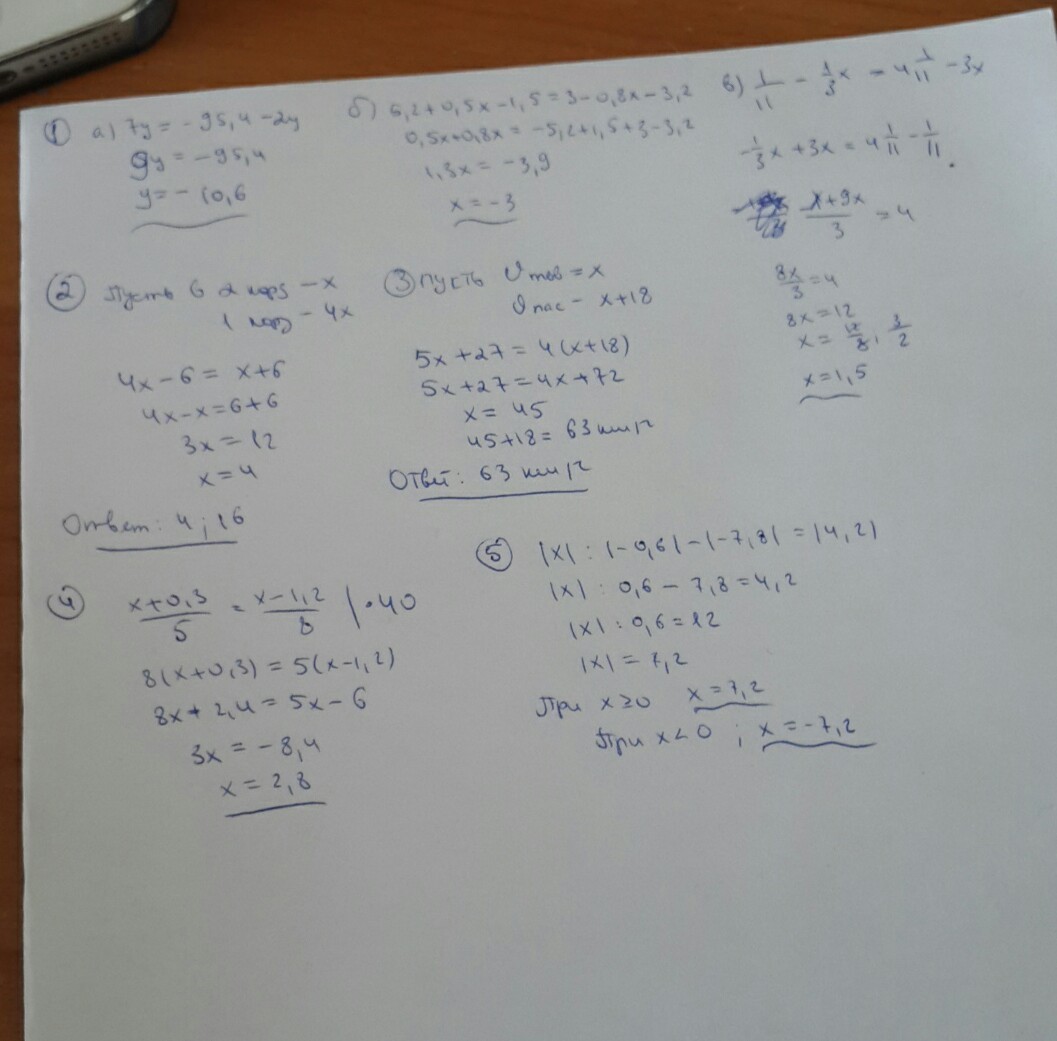 ① а) 7y = -95,4 - 2y
9y = -95,4
y = -10,6
б) 5,2 + 0,5x - 1,5 = 3 - 0,8x - 3,2
0,5x + 0,8x = -5,2 + 1,5 + 3 - 3,2
1,3x = -3,9
x = -3
в) 1/11 - 1/3x = 4 1/11 - 3x
-1/3x + 3x = 4 1/11 - 1/11
x+9x/3 = 4
8x/3 = 4
8x = 12
x = 12/8, 3/2
x = 1,5
② Пусть в 2 - x
1 - 4x
4x - 6 = x + 6
4x - x = 6 + 6
3x = 12
x = 4
Ответ: 4; 16
③ Пусть Vтов = x
Vпас - x + 18
5x + 27 = 4(x + 18)
5x + 27 = 4x + 72
x = 45
45 + 18 = 63 км/ч
Ответ: 63 км/ч
④ x+0,3/5 = x-1,2/8 | • 40
8(x + 0,3) = 5(x - 1,2)
8x + 2,4 = 5x - 6
3x = -8,4
x = 2,8
⑤ |x| : |-0,6| - |-7,8| = |4,2|
|x| : 0,6 - 7,8 = 4,2
|x| : 0,6 = 12
|x| = 7,2
При x ≥ 0 x = 7,2
При x < 0 ; x = -7,2